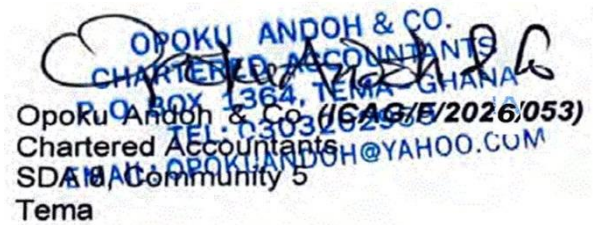 OPOKU ANDOH & CO.
CHARTERED ACCOUNTANTS
P. O. BOX 1364, TEMA - GHANA
TEL: 0303202
EMAIL: OPOKUANDOH@YAHOO.COM
Opoku Andoh & Co
Opoku Andoh & Co (ICAG/F/2026/053)
Chartered Accountants
SDA 8, Community 5
Tema